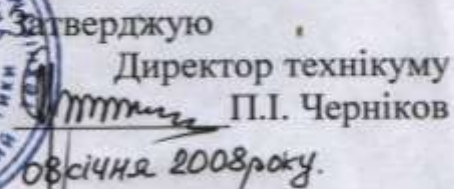 Затверджую
Директор технікуму
П.І. Черніков
08 січня 2008 року.